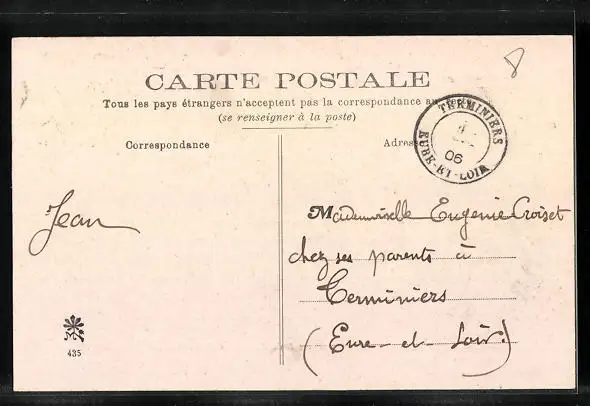 8
CARTE POSTALE
Tous les pays étrangers n'acceptent pas la correspondance au
(se renseigner à la poste)
Correspondance
Adresse
TERMINIERS
06
EURE-ET-LOIR
Jean
Mademoiselle Eugenie Croiset
chez ses parents à
Terminiers
(Eure-et-Loir)
435